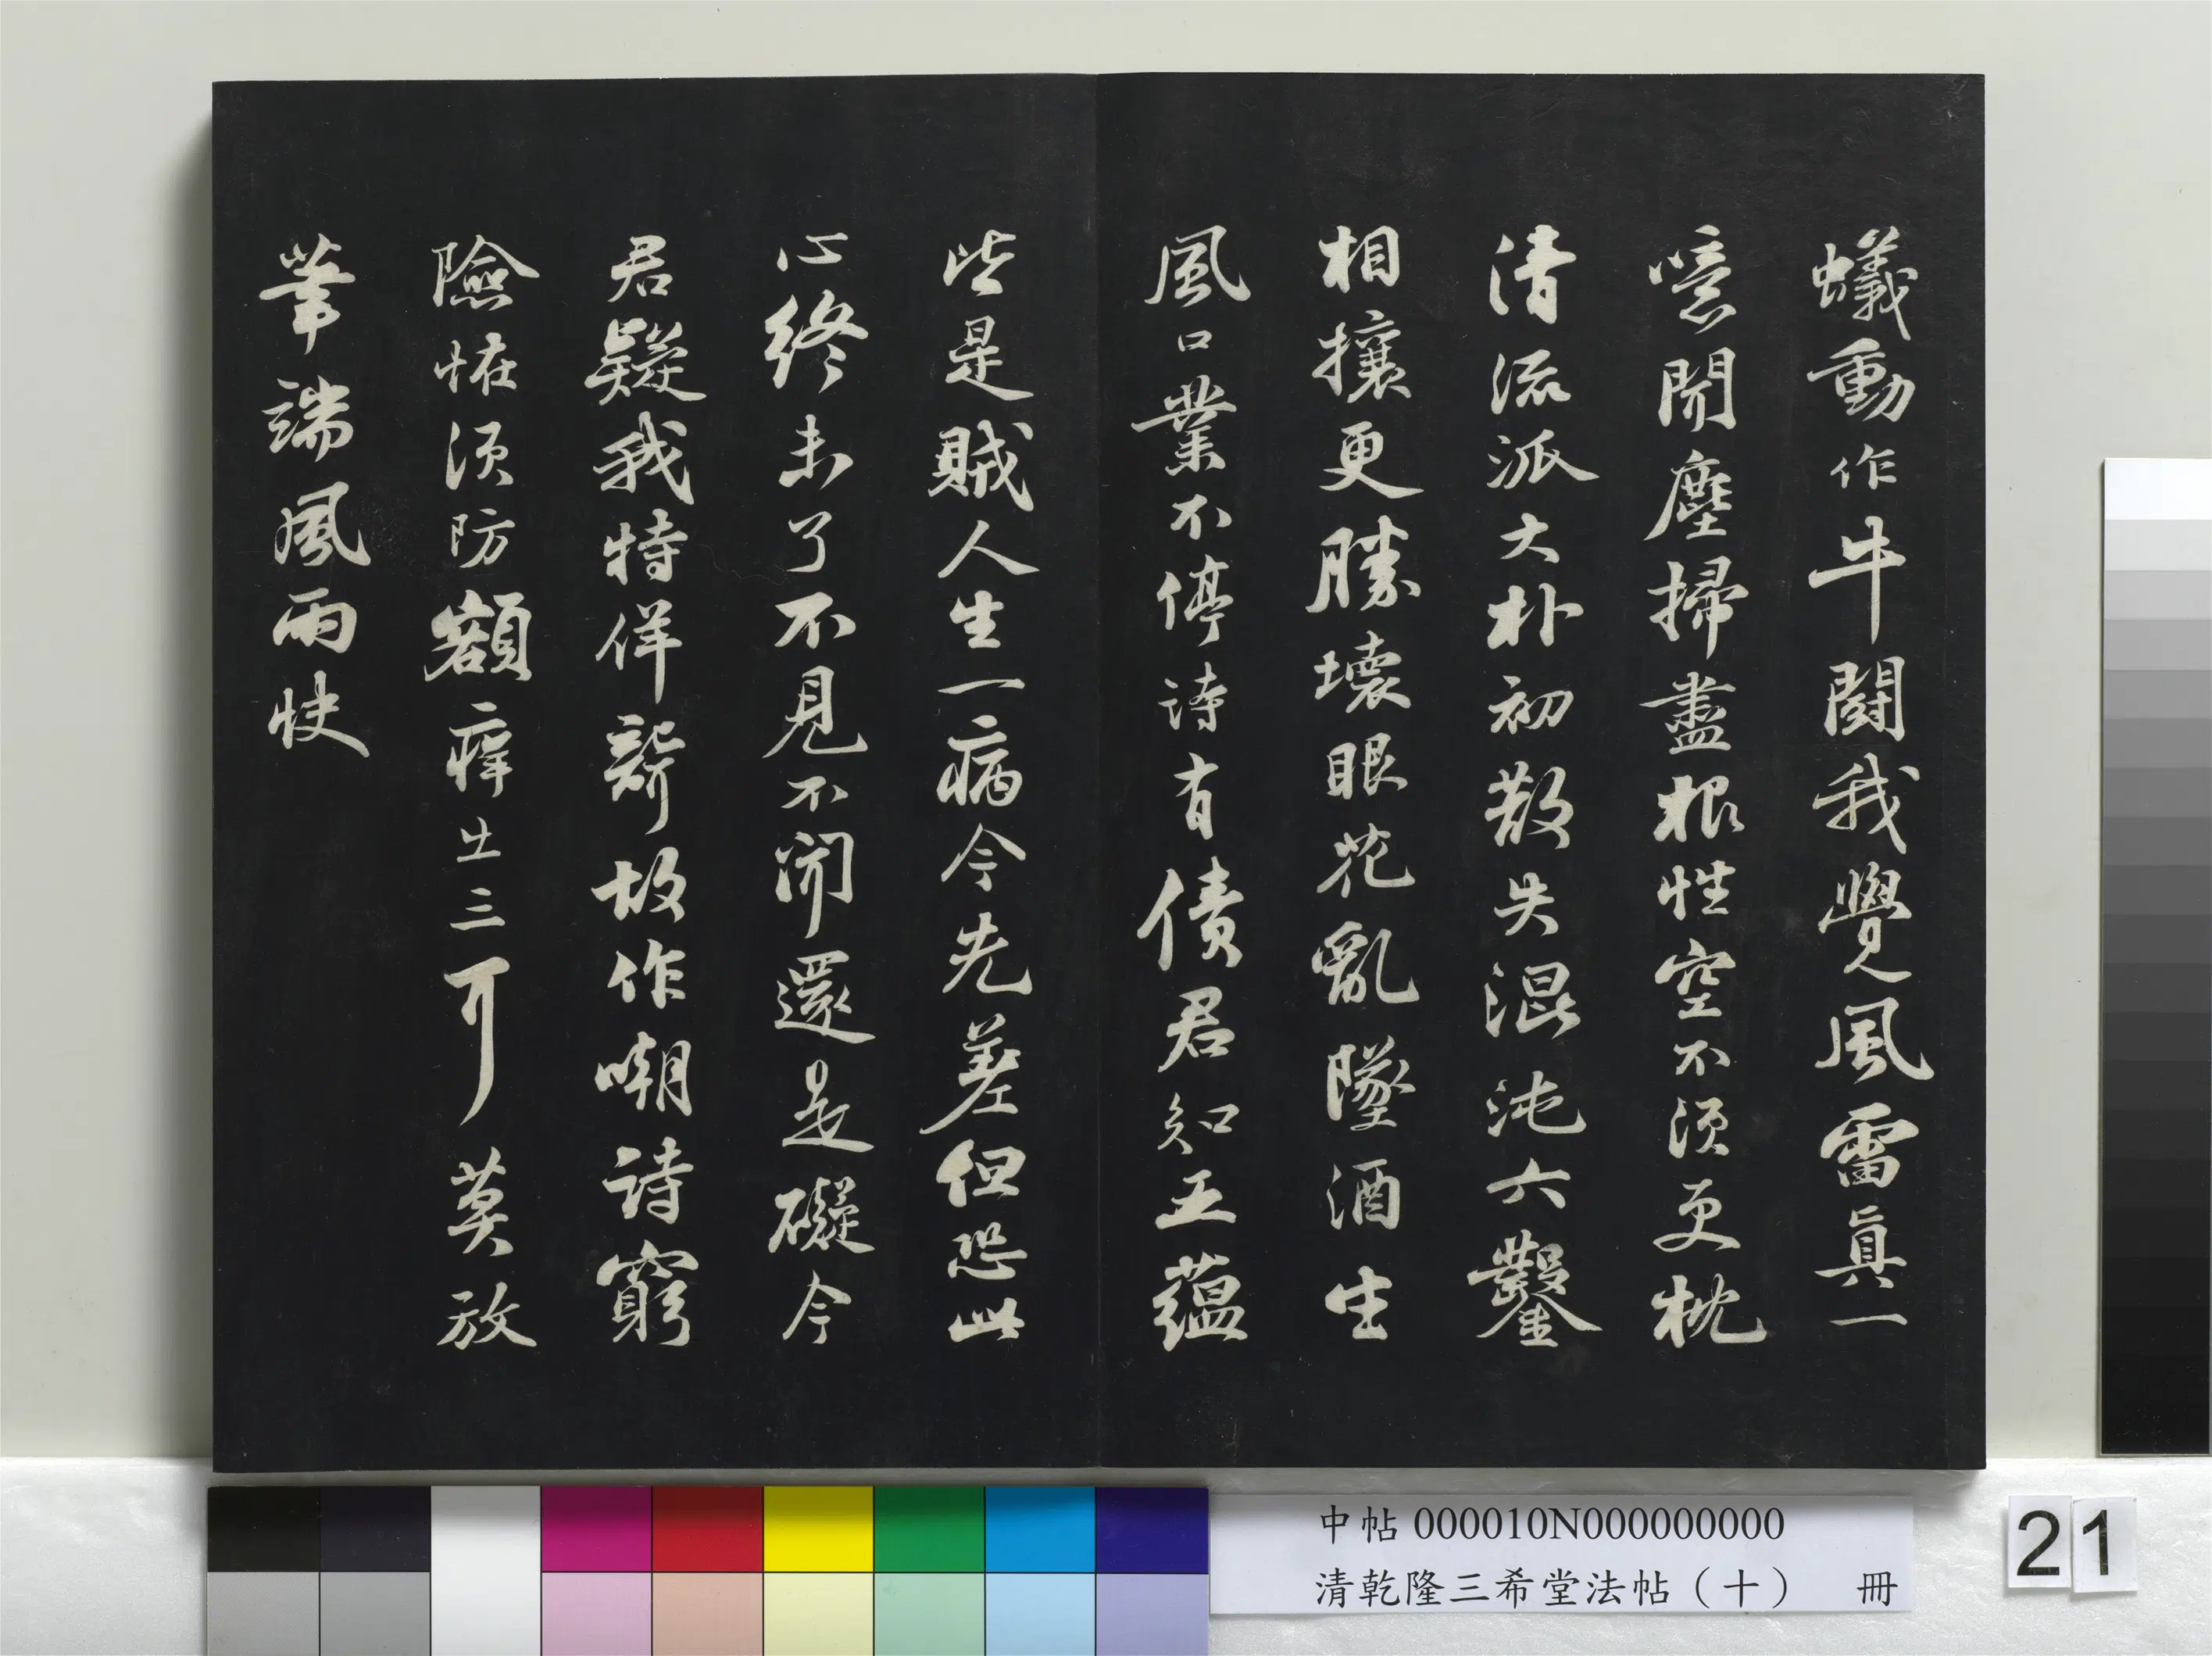 蟻動作牛鬭我覺風雷真一
噫聞塵掃盡根性空不須更枕
清流派大朴初散失混沌六鑿
相攘更勝壞眼花亂墜酒生
風口業不停詩有債君知五蘊
皆是賊人生一病今先差但恐此
心終未了不見不聞還是礙今
君疑我特佯聾故作嘲詩窮
險怪須防額癢出三耳莫放
筆端風雨快
中帖 000010N000000000
清乾隆三希堂法帖（十） 冊
21